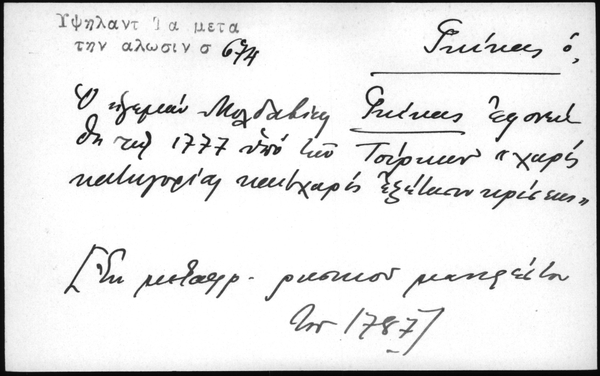 Υψηλαντ Ια μετα
την αλωσιν σ 674
Γκίκας ὁ,
Ὁ ἡγεμὼν Μολδαβίας Γκίκας ἐφονεύ
θη τῷ 1777 ὑπὸ τῶν Τούρκων "χωρὶς
κατηγορίαν καὶ χωρὶς ἐξέτασιν κρίσεως"
[Ἐκ μεταφρ. ρωσικοῦ μανιφέστου
τοῦ 1787]